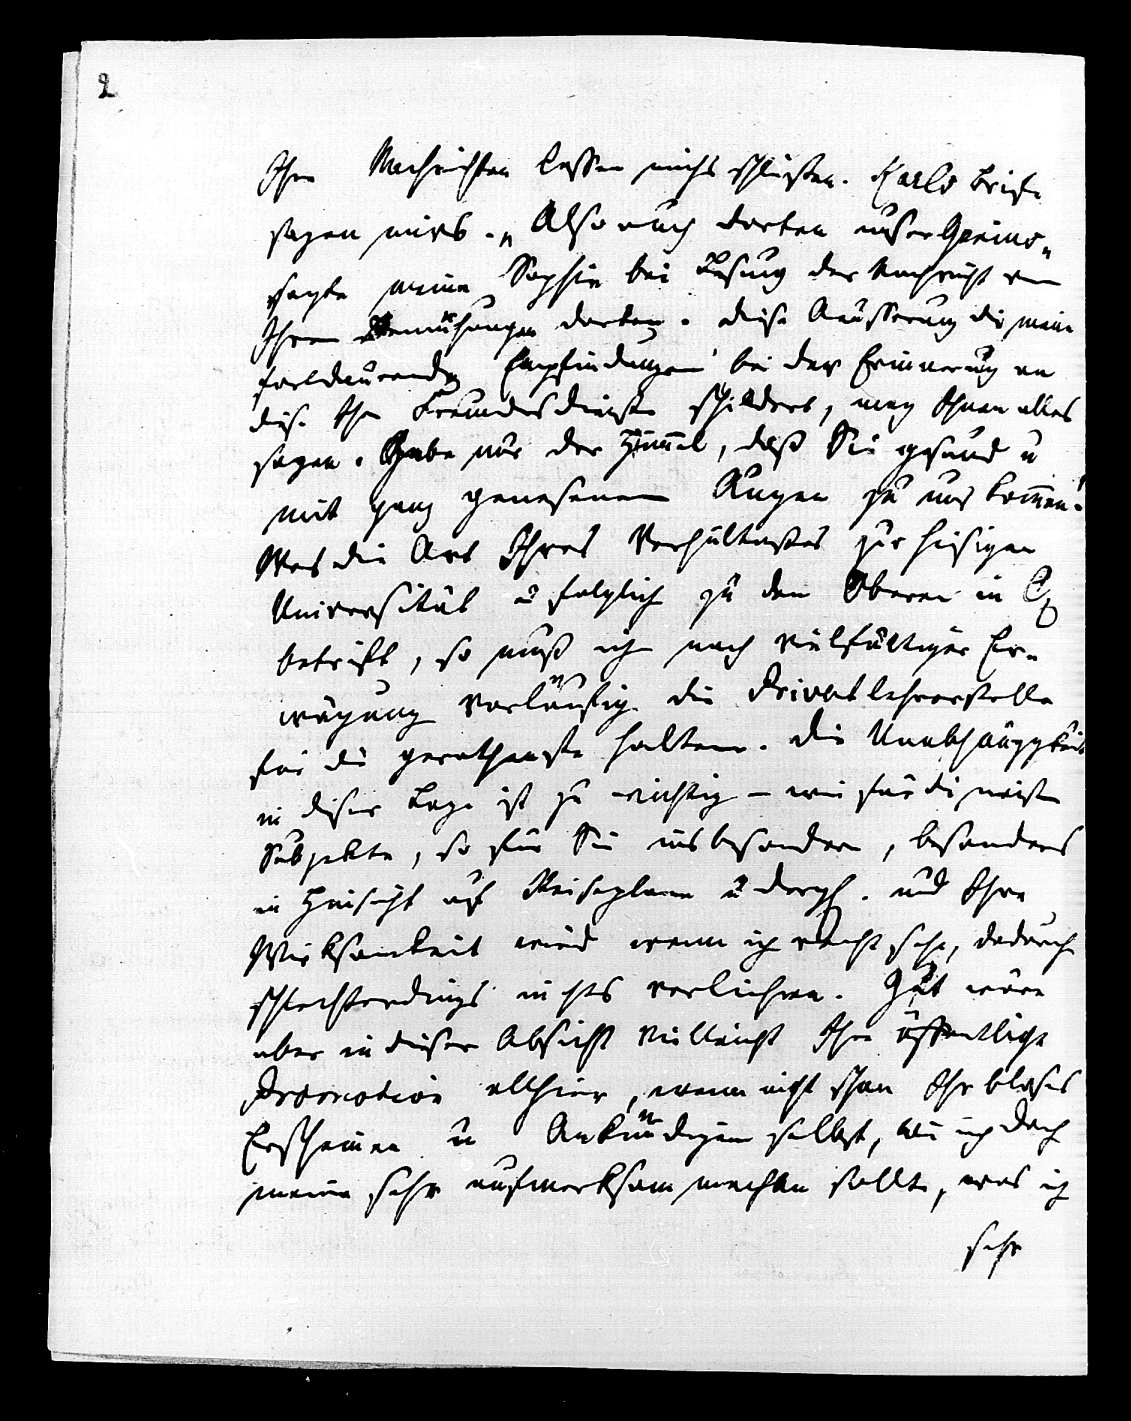 2
Ihre Nachrichten lassen michs schließen. Karls Briefe
sagen mirs. „Also auch dorten unser
sagte meine Sophie bei Lesung der Nachricht von
Ihren Bemühungen dorten. diese Äusserung die meine
fortdaurenden Empfindungen bei der Erinnerung an
diese Ihre Freundesdienste schildert, mag Ihnen alles
sagen. Gebe nur der Himmel, daß Sie gesund u
mit ganz genesenen Augen zu uns kommen!
Was die Art Ihres Verhältnißes zur hiesigen
Universität u folglich zu den Obern in
betrift, so muß ich nach vielfältiger Er-
wägung vorläufig die Privatlehrerstelle
für die gerathenste halten. die Unabhängigkeit
in dieser Lage ist zu wichtig – wie für die meisten
Subjekte, so für Sie insbesondere, besonders
in Hinsicht auf Reiseplane u dergl. und Ihre
Wirksamkeit wird wenn ich recht sehe, dadurch
schlechterdings nichts verliehren. Gut wäre
aber in dieser Absicht vielleicht Ihre öffentliche
Promotion allhier, wenn nicht schon Ihr bloses
Erscheinen u Ankündigen selbst, wie ich doch
meine sehr aufmerksam machen sollte, was ich
sehr